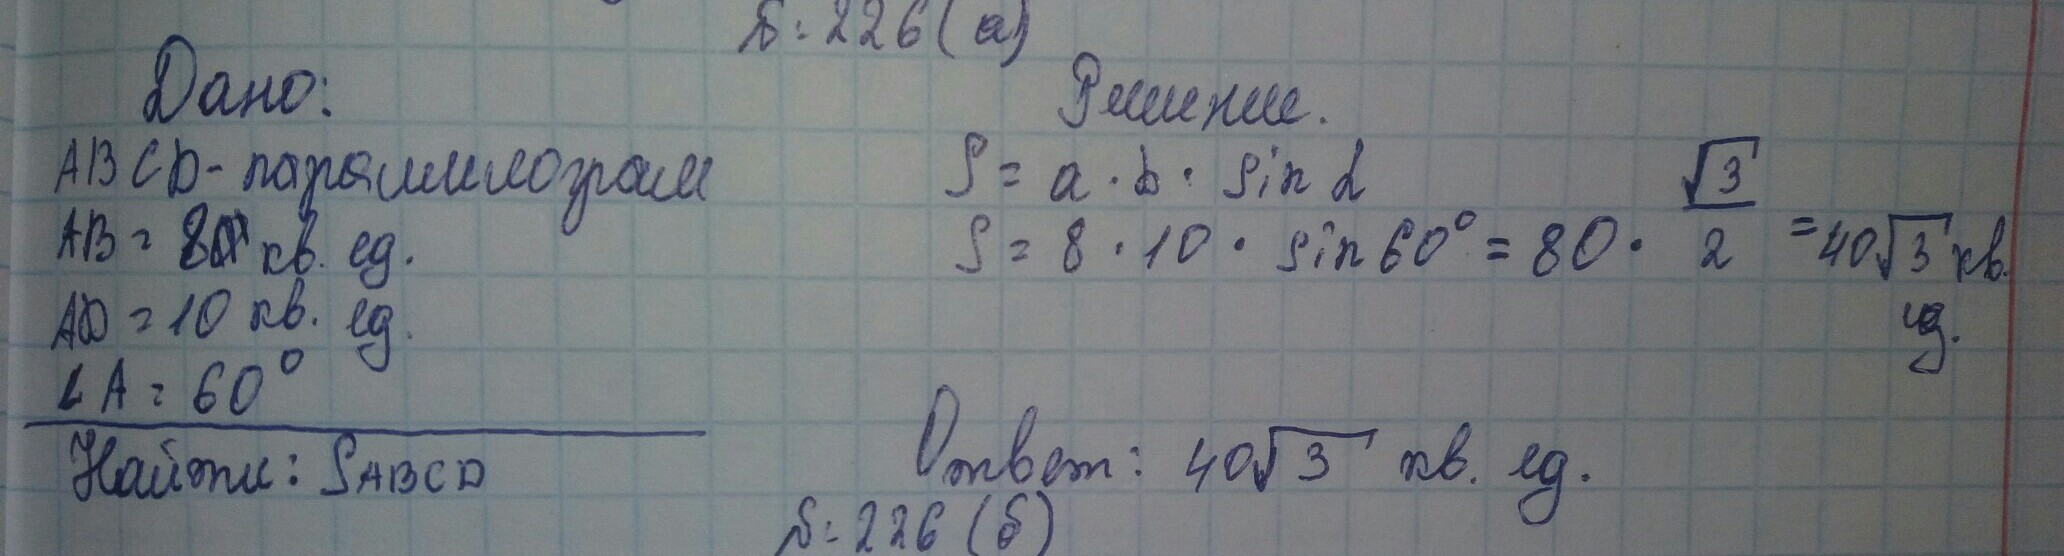 № 226 (а)
Дано:
ABCD - параллелограм
AB = 8 кв. ед.
AD = 10 кв. ед.
∠A = 60°
Найти: SABCD
Решение.
S = a · b · sin α
S = 8 · 10 · sin 60° = 80 · √3/2 = 40√3 кв.
ед.
Ответ: 40√3 кв. ед.
№ 226 (б)